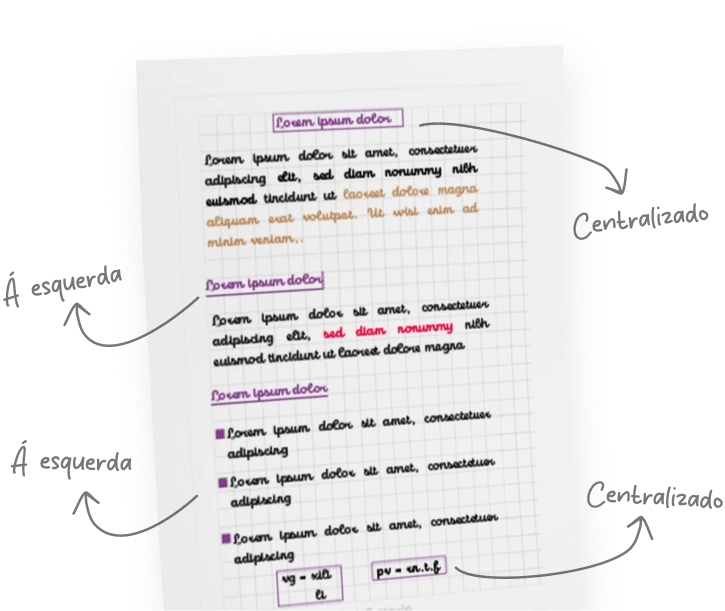 Lorem ipsum dolor
Lorem ipsum dolor sit amet, consectetuer
adipiscing elit, sed diam nonummy nibh
euismod tincidunt ut laoreet dolore magna
aliquam erat volutpat. Ut wisi enim ad
minim veniam,.
Centralizado
Á esquerda
Lorem ipsum dolor
Lorem ipsum dolor sit amet, consectetuer
adipiscing elit, sed diam nonummy nibh
euismod tincidunt ut laoreet dolore magna
Lorem ipsum dolor
Lorem ipsum dolor sit amet, consectetuer
adipiscing
Á esquerda
Lorem ipsum dolor sit amet, consectetuer
adipiscing
Centralizado
Lorem ipsum dolor sit amet, consectetuer
adipiscing
pv = n.r.t.f